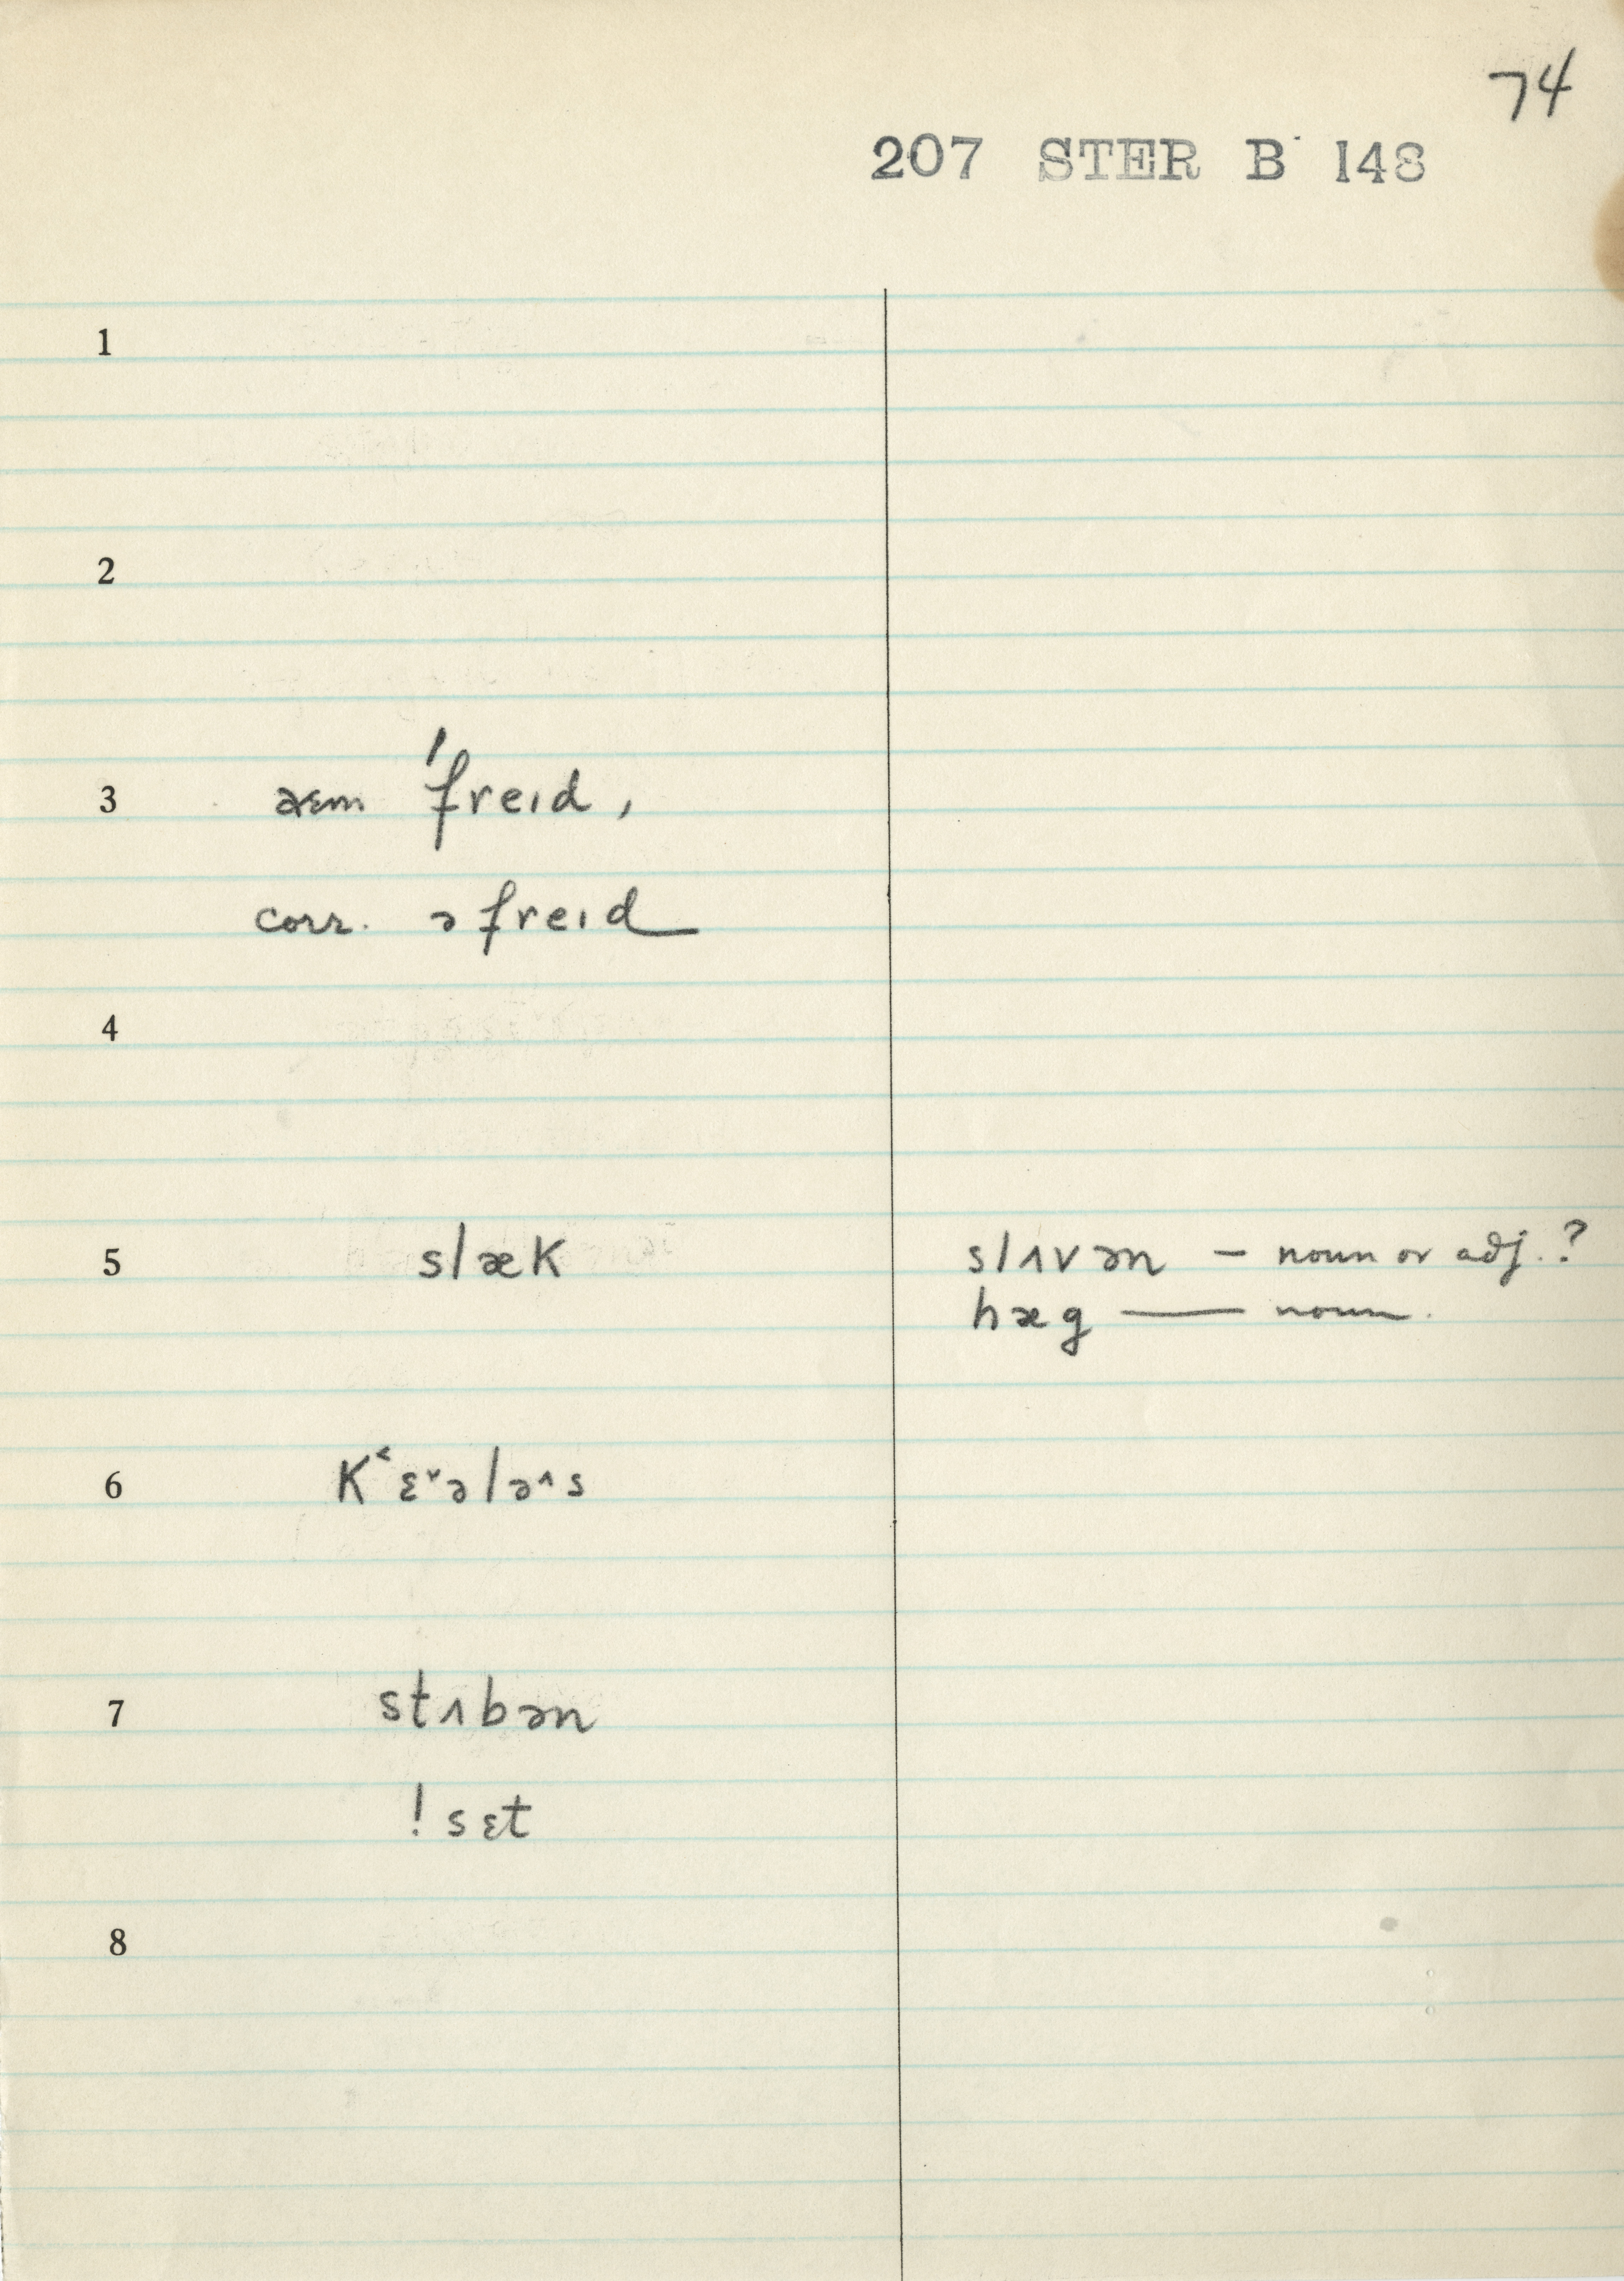 74
207 STER B 148
1
2
3 aɛm ˈfreɪd,
corr. əfreɪd
4
5 slæk slʌvən — noun or adj.?
hæg — noun.
6 K˂ɛ˅ələ˄s
7 stʌbən
! sɛt
8